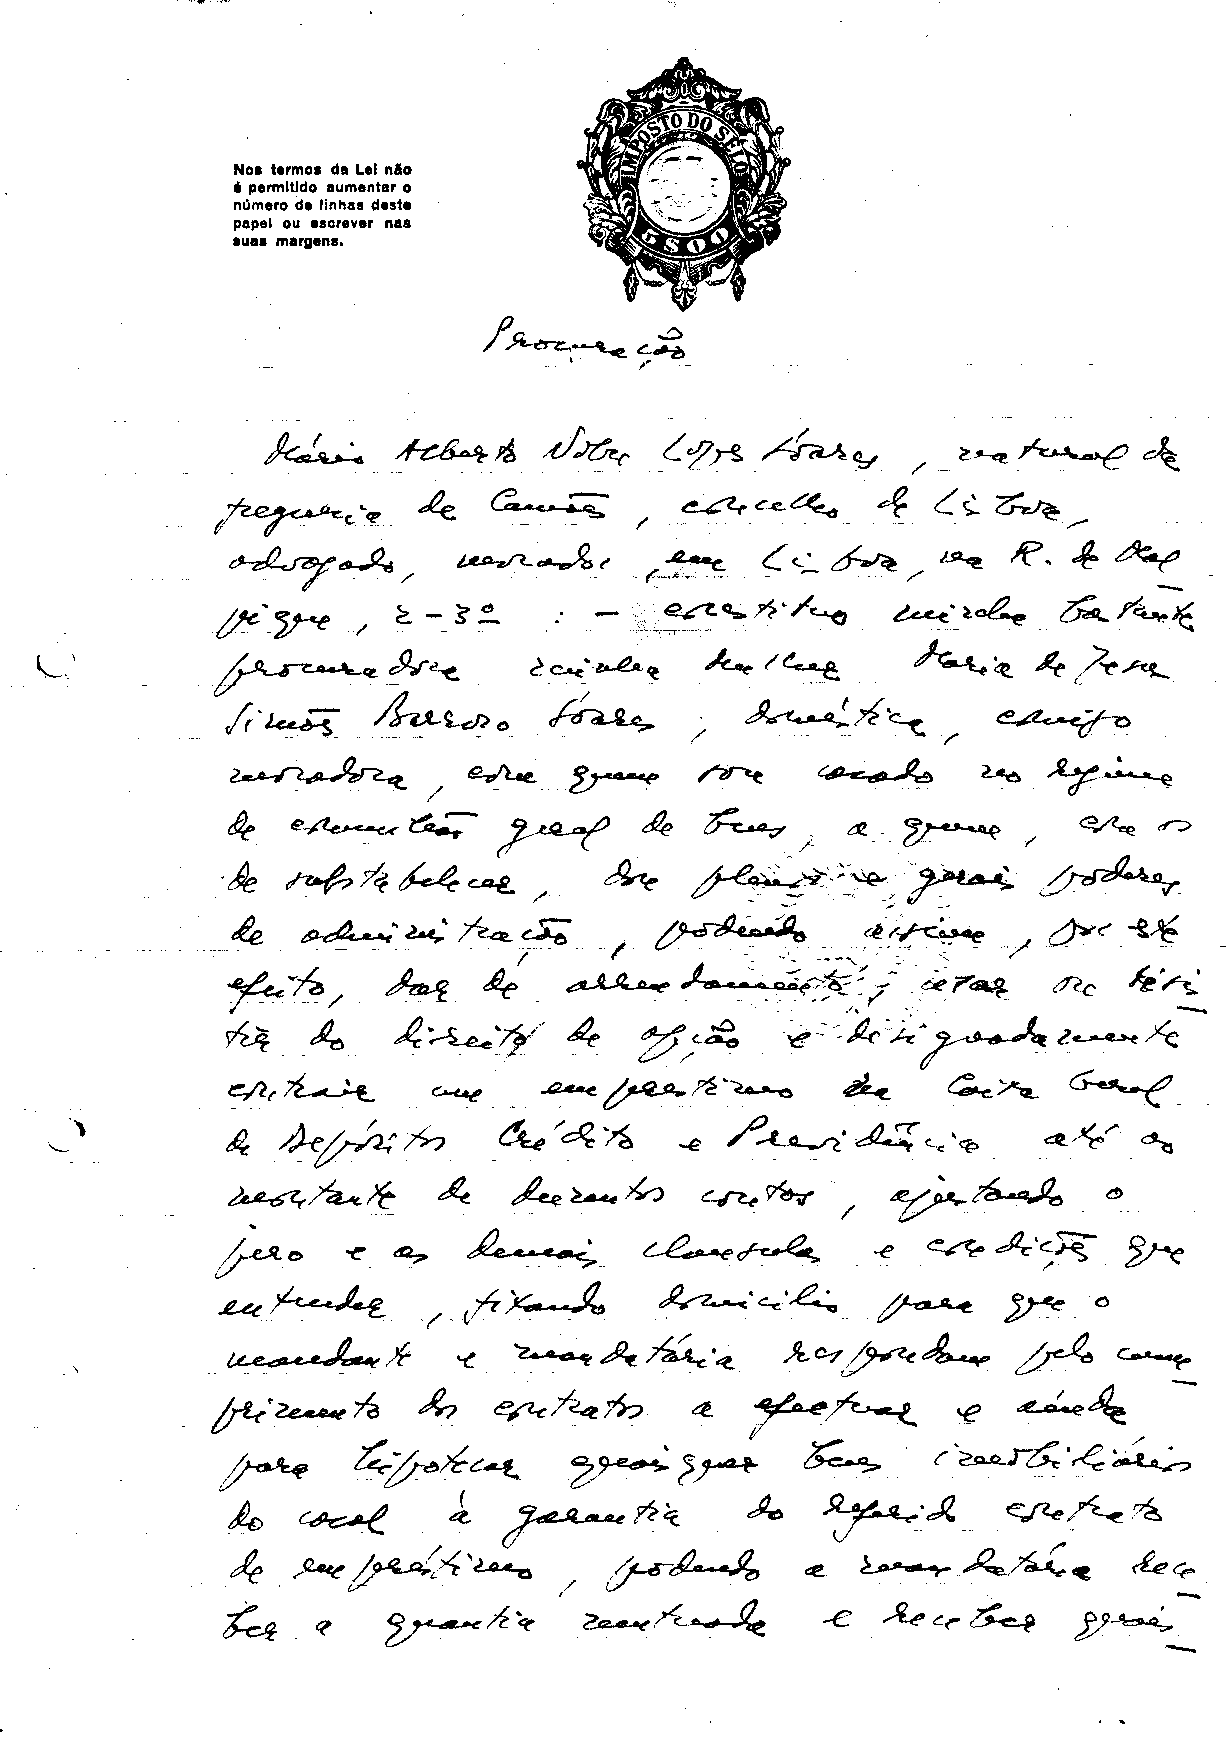 IMPOSTO DO SELO
5$00
Nos termos da Lei não
é permitido aumentar o
número de linhas deste
papel ou escrever nas
suas margens.
Procuração
Mário Alberto Nobre Lopes Sóares, natural da
freguesia de Camões, concelho de Lisboa,
advogado, morador em Lisboa, na R. de Mal
pique, 2-3º : - constituo minha bastante
procuradora minha mulher Maria de Jesus
Simões Barroso Sóares, doméstica, comigo
moradora, com quem sou casado no regime
de comunhão geral de bens, a quem, com o
de substabelecer, dou plenos e gerais poderes
de administração, podendo assim, por este
efeito, dar de arrendamento, usar ou desis
tir do direito de opção e designadamente
contrair um empréstimo na Caixa Geral
de Depósitos Crédito e Previdência até ao
montante de duzentos contos, ajustando o
juro e as demais clausulas e condições que
entender, fixando domicilio para que o
mandante e mandatária respondam pelo cum
primento dos contratos a efectuar e ainda
para hipotecar quaisquer bens imobiliários
do casal à garantia do referido contrato
de empréstimo, podendo a mandatária rece
ber a quantia mutuada e receber quais